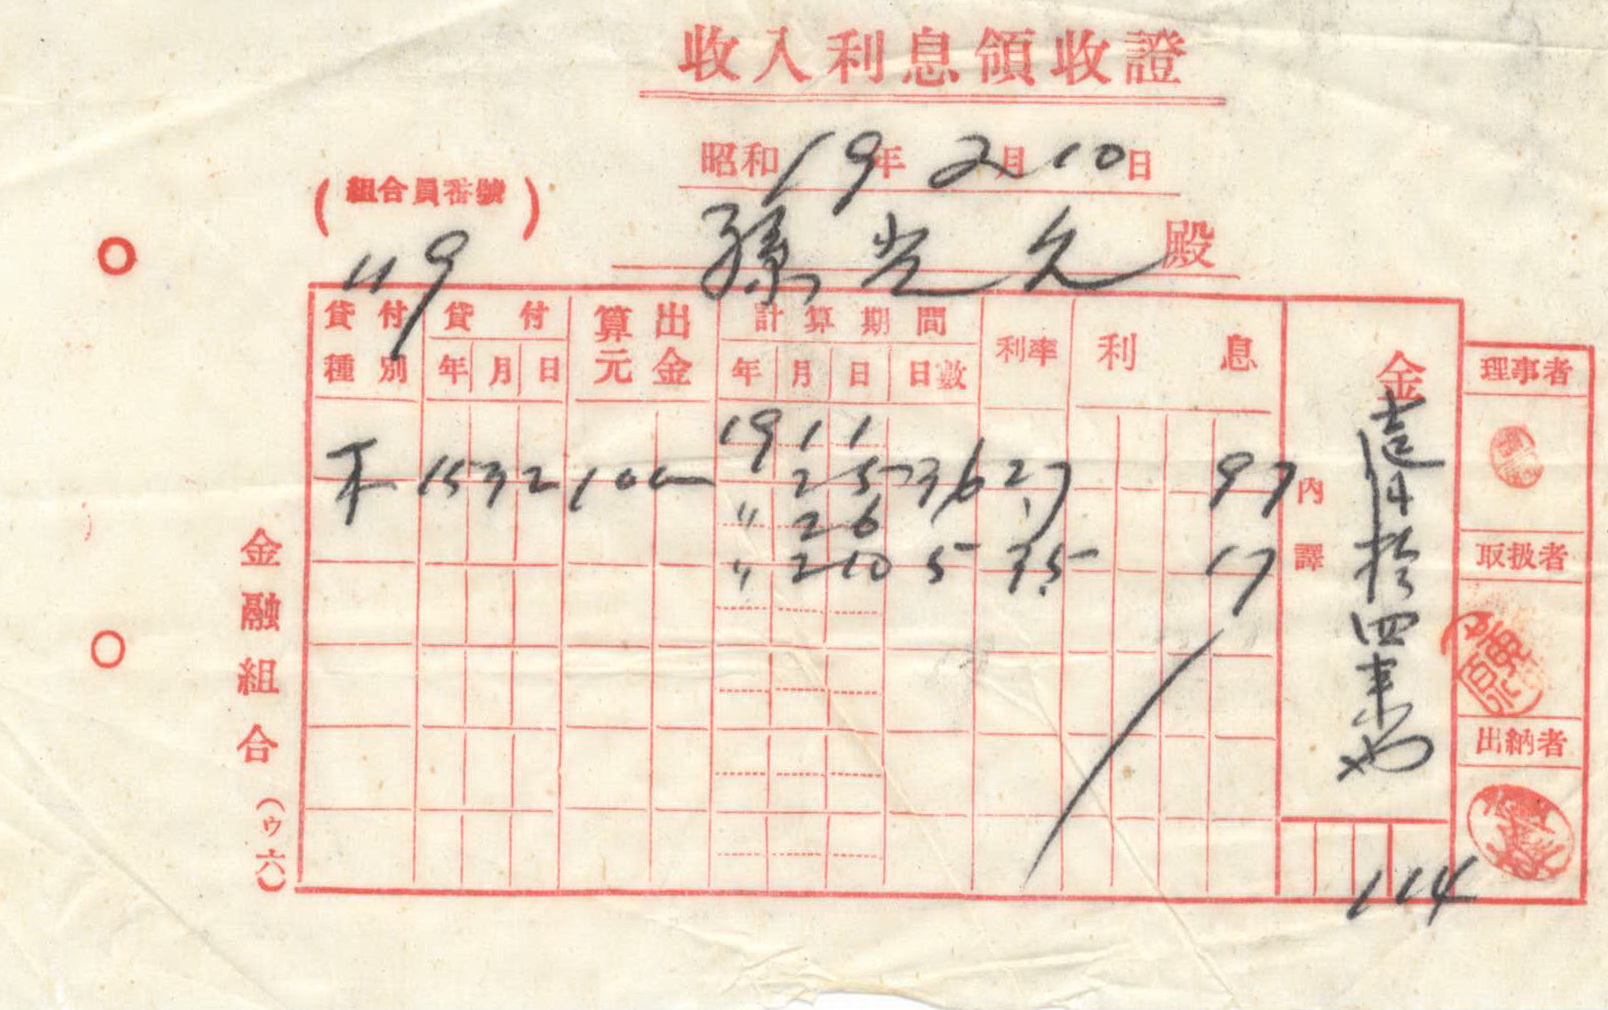 收入利息領收證
昭和19年2月10日
(組合員番號)
119
孫光久殿
貸付種別 貸付年月日 算出元金 計算期間年月日日數 利率 利息
19 1 1
不 15 3 2 100 〃 2 5 36 27 97
〃 2 6
〃 2 10 5 35 17
內譯
金壹円拾四戋也
114
理事者
取扱者
出納者
金融組合(ゥ六)